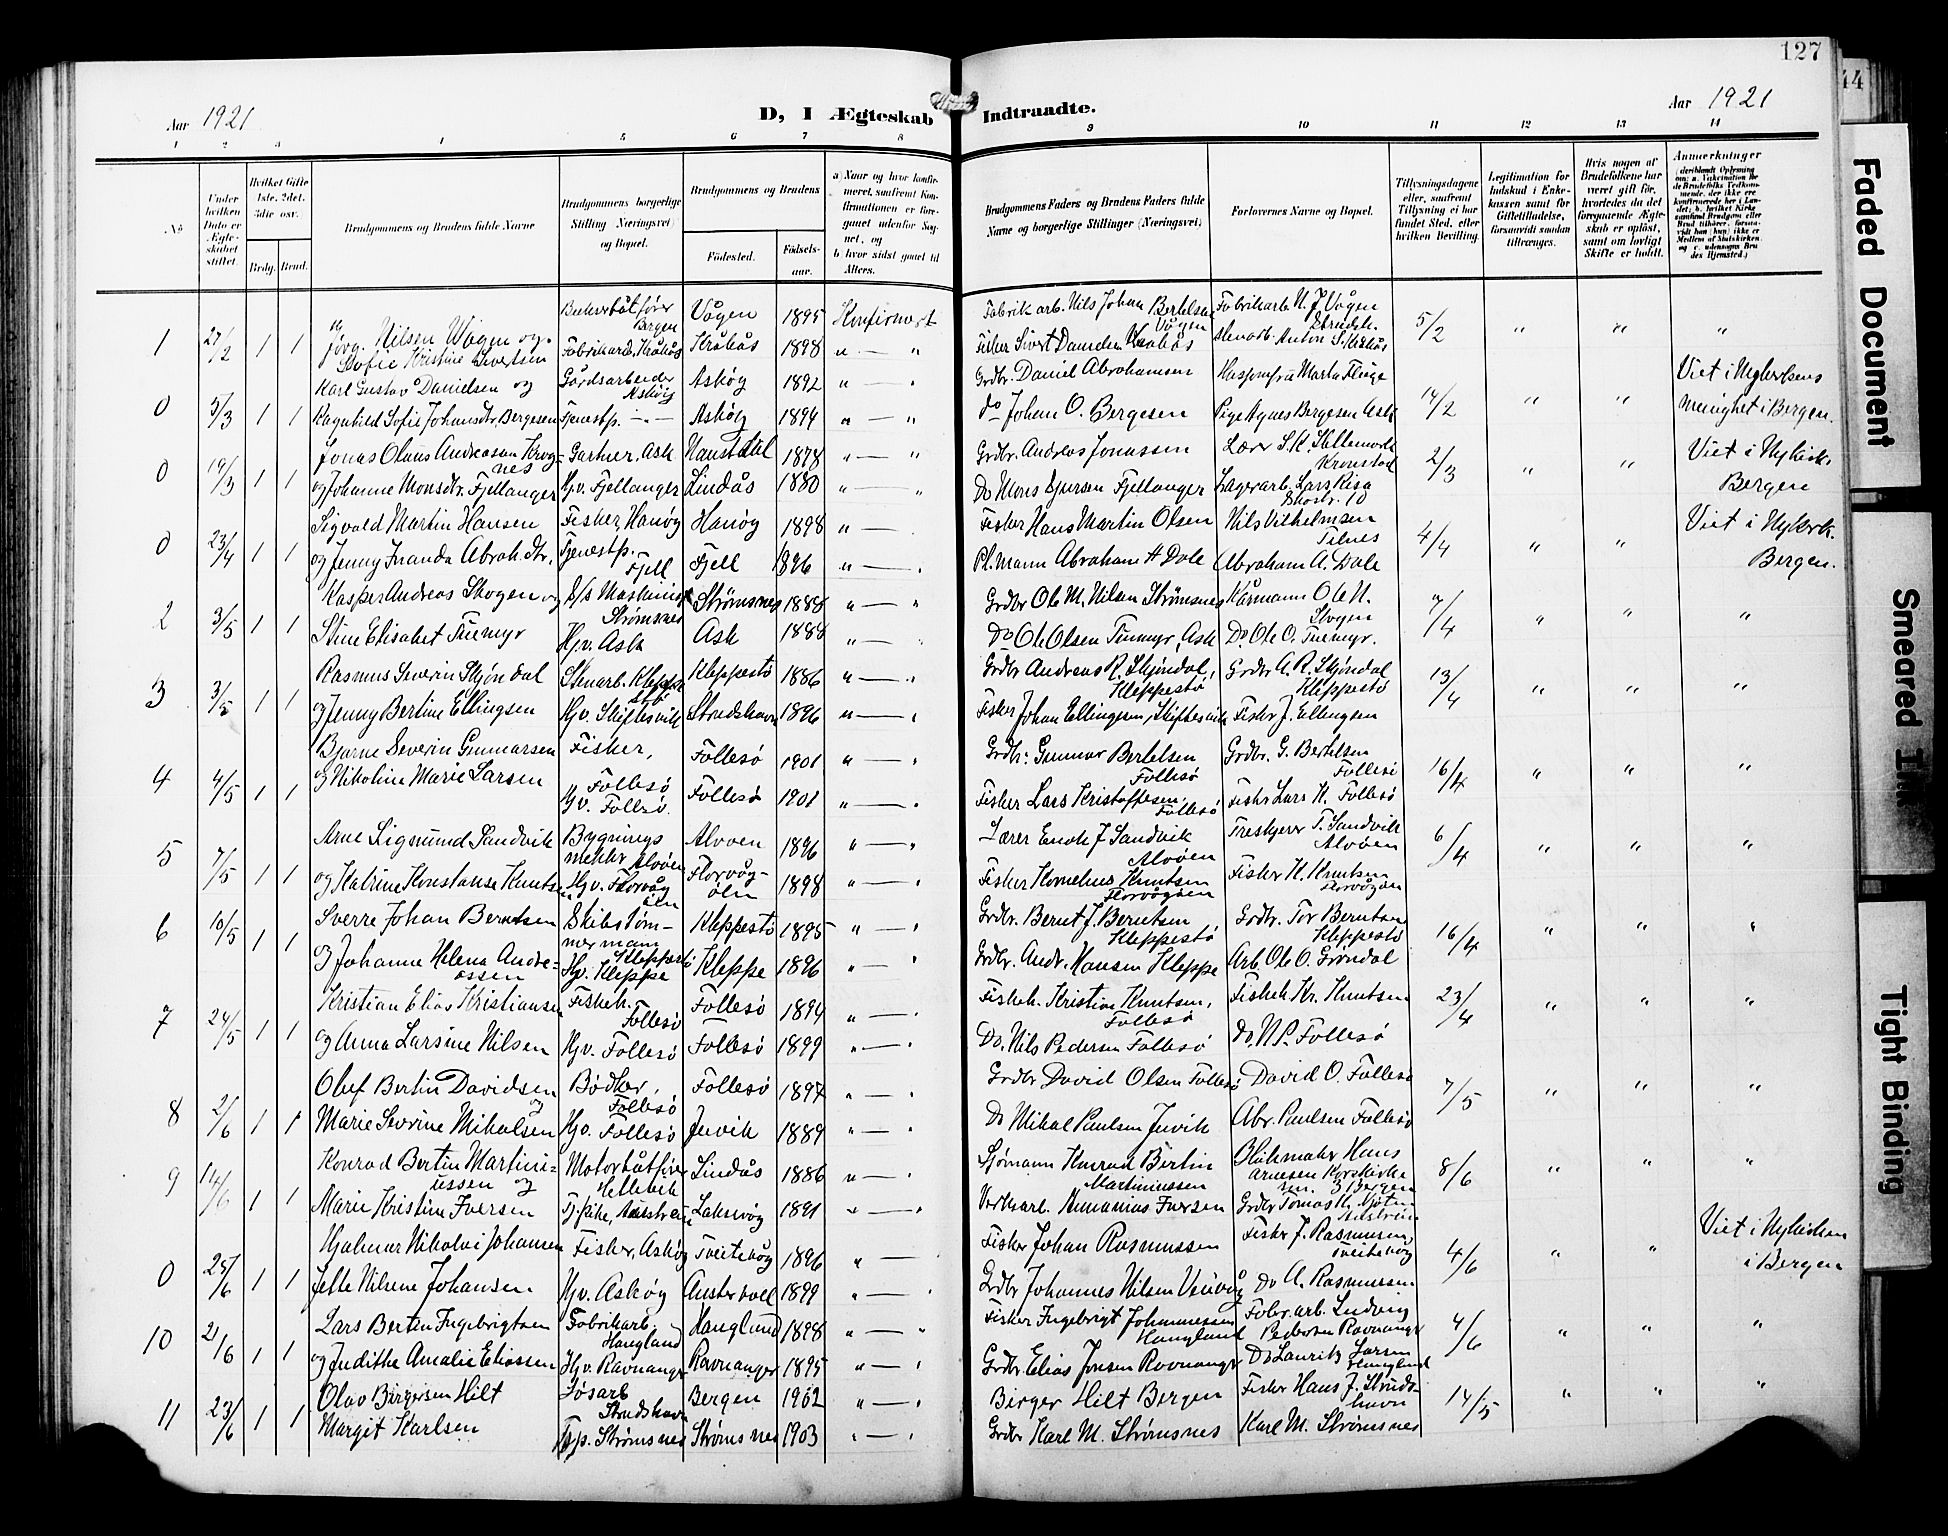 127
44
Aar 1921
D, I Ægteskab Indtraadte.
Aar 1921
1 2 3 4 5 6 7 8 9 10 11 12 13 14
No
Under hvilken Dato er Ægteskabet stiftet.
Hvilket Gifte 1ste, 2det, 3die osv.
Brdg. Brud.
Brudgommens og Brudens fulde Navne
Brudgommens borgerlige Stilling (Næringsvei) og Bopæl.
Brudgommens og Brudens
Fødested.
Fødsels-aar.
a) Naar og hvor konfirmeret, saafremt Konfirmationen er foregaaet udenfor Sognet, og
b) hvor sidst gaaet til Alters.
Brudgommens Faders og Brudens Faders fulde Navne og borgerlige Stillinger (Næringsvei)
Forlovernes Navne og Bopæl.
Tillysningsdagene eller, saafremt Tillysning ei har fundet Sted, efter hvilken Bevilling.
Legitimation for Indskud i Enkekassen samt for Giftetilladelse, forsaavidt saadan tiltrænges.
Hvis nogen af Brudefolkene har været gift før, hvorledes da det foregaaende Ægteskab er opløst, samt om lovligt Skifte er holdt.
Anmærkninger
1 27/2 1 1 Jørg. Nilsen Wågen og Bergen Vågen 1895 Konfirmert Fabrikarb. Nils Johan Bertelsen Vågen Fabrikarb. N. J. Vågen 5/2 " " "
Sofie Kristine Sivertsen Fabrikarb. Kråkås Kråkås 1898 " — " Fisker Sivert Danielsen Kråkås
0 5/3 1 1 Karl Gustav Danielsen og Gårdsarbeider Askøy Askøy 1892 " — " Grdbr. Daniel Abrahamsen 14/2 " "
Ragnhild Sofie Johansdtr. Bergesen Tjenestp. — " — Askøy 1894 " — " Do Johan O. Bergesen Pige Agnes Bergesen Ask Menighet i Bergen.
0 19/3 1 1 Jonas Olaus Andreasen Krognes Gartner. Ask Naustdal 1878 " — " Grdbr. Andreas Jonassen Kronstad 2/3 " " Viet i Nykirk.
og Johanne Monsdtr. Fjellanger Hjv. Fjellanger Lindås 1880 " — " Do Mons Fjellanger Lagerarb. Lars Risa Bergen
0 23/4 1 1 Sigvald Martin Hansen Fisker, Hanøy Hanøy 1898 " — Fisker Hans Martin Olsen Nils Vilhelmsen 4/4 " " Viet i Nykirk.
og Jenny Inanda Abrah.dtr. Tjenestp. Fjell Fjell 1896 " — " Pl.mann Abraham H Dale Abraham A. Dale Bergen.
2 3/5 1 1 Kasper Andreas Skogen og S/s Maskinist Strømsnes Strømsnes 1888 " — " Grdbr Ole M. Nilsen Strømsnes Kårmann Ole N. Skogen 7/4 " " "
Stine Elisabet Tuemyr Hjv. Ask Ask 1888 " — " Do Ole Olsen Tuemyr, Ask Do. Ole O. Tuemyr.
3 3/5 1 1 Rasmus Severin Skjøndal Stenarb. Kleppestø Kleppestø 1886 " — " Grdbr Andreas R. Skjøndal, Kleppestø Grdbr A. R. Skjøndal Kleppestø 13/4 " " "
og Jenny Bertine Ellingsen Hjv. Skiftesvik Strudshavn 1896 " — " Fisker Johan Ellingsen, Skiftesvik Fisker J. Ellingsen
4 4/5 1 1 Bjarne Severin Gunnarsen Fisker, Follesø Follesø 1901 " — " Grdbr. Gunnar Bertelsen Follesø Grdbr. G. Bertelsen Follesø 16/4 " " "
og Nikoline Marie Larsen Hjv. Follesø Follesø 1901 " — " Fisker Lars Kristoffersen, Follesø Fisker Lars K. Follesø
5 7/5 1 1 Arne Sigmund Sandvik Bygnings Alvøen Alvøen 1896 " — " Lærer Enok J Sandvik Alvøen T. Sandvik Alvøen 6/4 " " "
og Katrine Konstanse Knutsen Hjv. Florvåg øen Florvåg-øen 1898 " — " Fisker Kornelius Knutsen Florvågøen Fisker K. Knutsen Florvågøen
6 10/5 1 1 Sverre Johan Berntsen Skibstømmermann Kleppestø Kleppestø 1895 " — " Grdbr. Bernt J. Berntsen Kleppestø Grdbr. Tor Berntsen Kleppestø 16/4 " " "
og Johanne Helena Andreassen Hjv. Kleppe Kleppe 1896 " — " Grdbr. Andr. Hansen Kleppe Arb. Ole O. Grøndal
7 24/5 1 1 Kristian Elias Kristiansen Fiskeh. Follesø Follesø 1894 " — " Fiskeh. Kristian Knutsen, Follesø Fiskeh Kr. Knutsen 23/4 " " "
og Anna Larsine Nilsen Hjv. Follesø Follesø 1899 " — " Do. Nils Pedersen Follesø Do. N. P. Follesø
8 2/6 1 1 Oluf Bertin Davidsen og Bødker, Follesø Follesø 1897 " — " Grdbr David Olsen Follesø David O. Follesø 7/5 " " "
Marie Severine Mikalsen Hjv. Follesø Juvik 1889 " — " Do Mikal Paulsen Juvik Abr. Paulsen Follesø
9 14/6 1 1 Konrad Bertin Martiniussen og Motorbåtfører Hellevik Lindås 1886 " — " Sjømann Konrad Bertin Martiniussen Hans Arnesen 3 Bergen 8/6 " " "
Marie Kristine Iversen Laksevåg 1891 " — " Iversen
0 25/6 1 1 Hjalmar Nikolai Johansen Fisker, Askøy Tveitevåg 1896 " Fisker Johan Rasmussen Fisker J. Rasmussen, Tveitevåg 4/6 " " Viet i Nykirken
Nilsine Johansen Hjv. Askøy Austevoll 1899 " — " Grdbr Johannes Nilsen Do A. Rasmussen i Bergen
10 21/6 1 1 Lars Bertin Ingebrigtsen Fabrikarb. Haugland Haugland 1898 " — " Fisker Ingebrigt Johannessen Haugland Fabr. arb. Ludvig Pedersen Ravnanger 4/6 " " "
og Judithe Amalie Eliassen Hjv. Ravnanger Ravnanger 1895 " — " Grdbr. Elias Jensen Ravnanger Do Lauritz Larsen Haugland
11 23/6 1 1 Olav Birgersen Hilt Løsarb Strudshavn Bergen 1902 " — " Birger Hilt Bergen Fisker Hans J. Strudshavn 14/5 " " "
Margit Karlsen Tjp. Strømsnes Strømsnes 1903 " — " Grdbr Karl M. Strømsnes Karl M. Strømsnes
Faded Document
Smeared Ink
Tight Binding